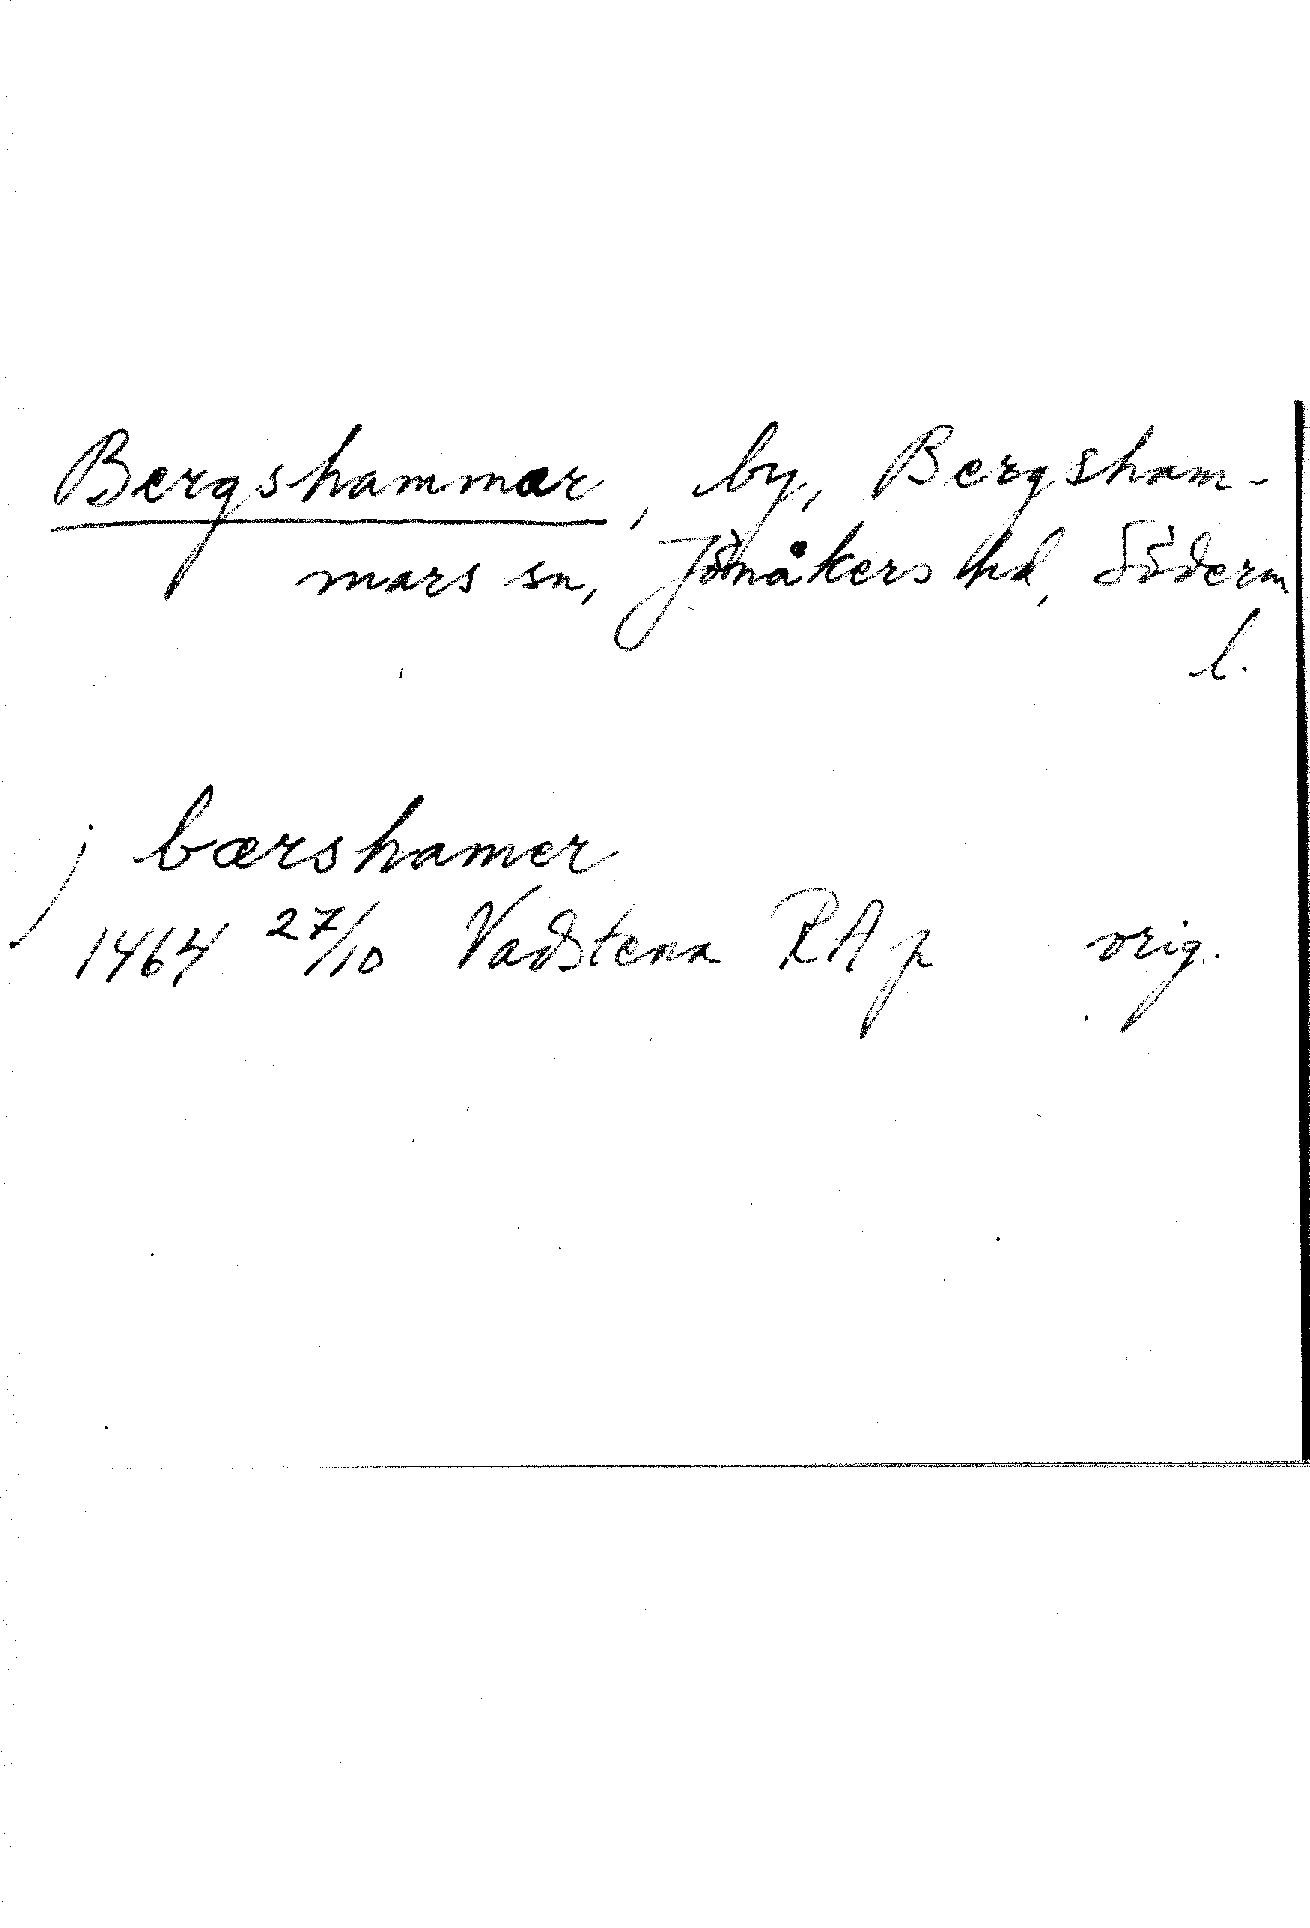 Bergshammar, by, Bergsham-
mars sn, Jönåkers hd, Söderm
l.
j bærshamer
1464 27/10 Vadstena RA p orig.